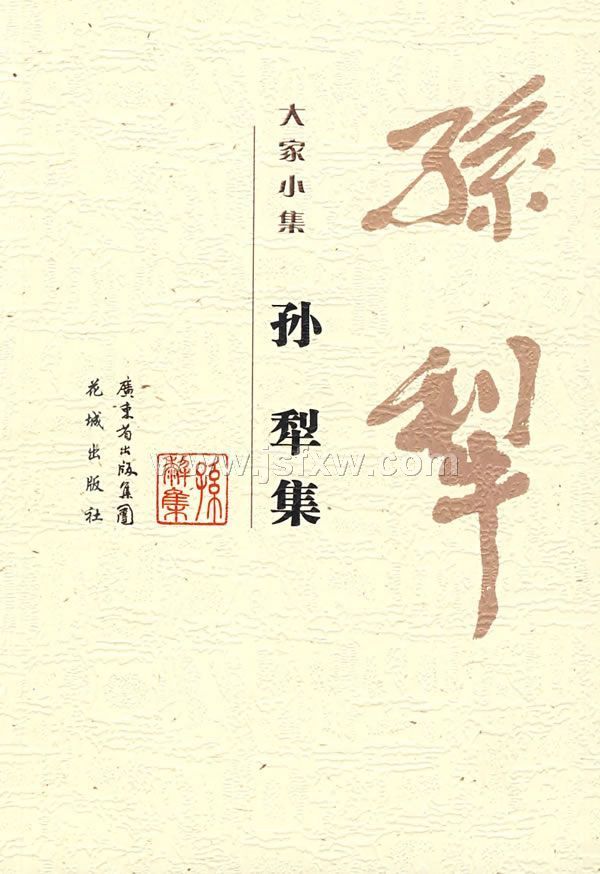 孫犁
大家小集
孙犁集
孫犂集
廣東省出版集團
花城出版社
www.jsfxw.com